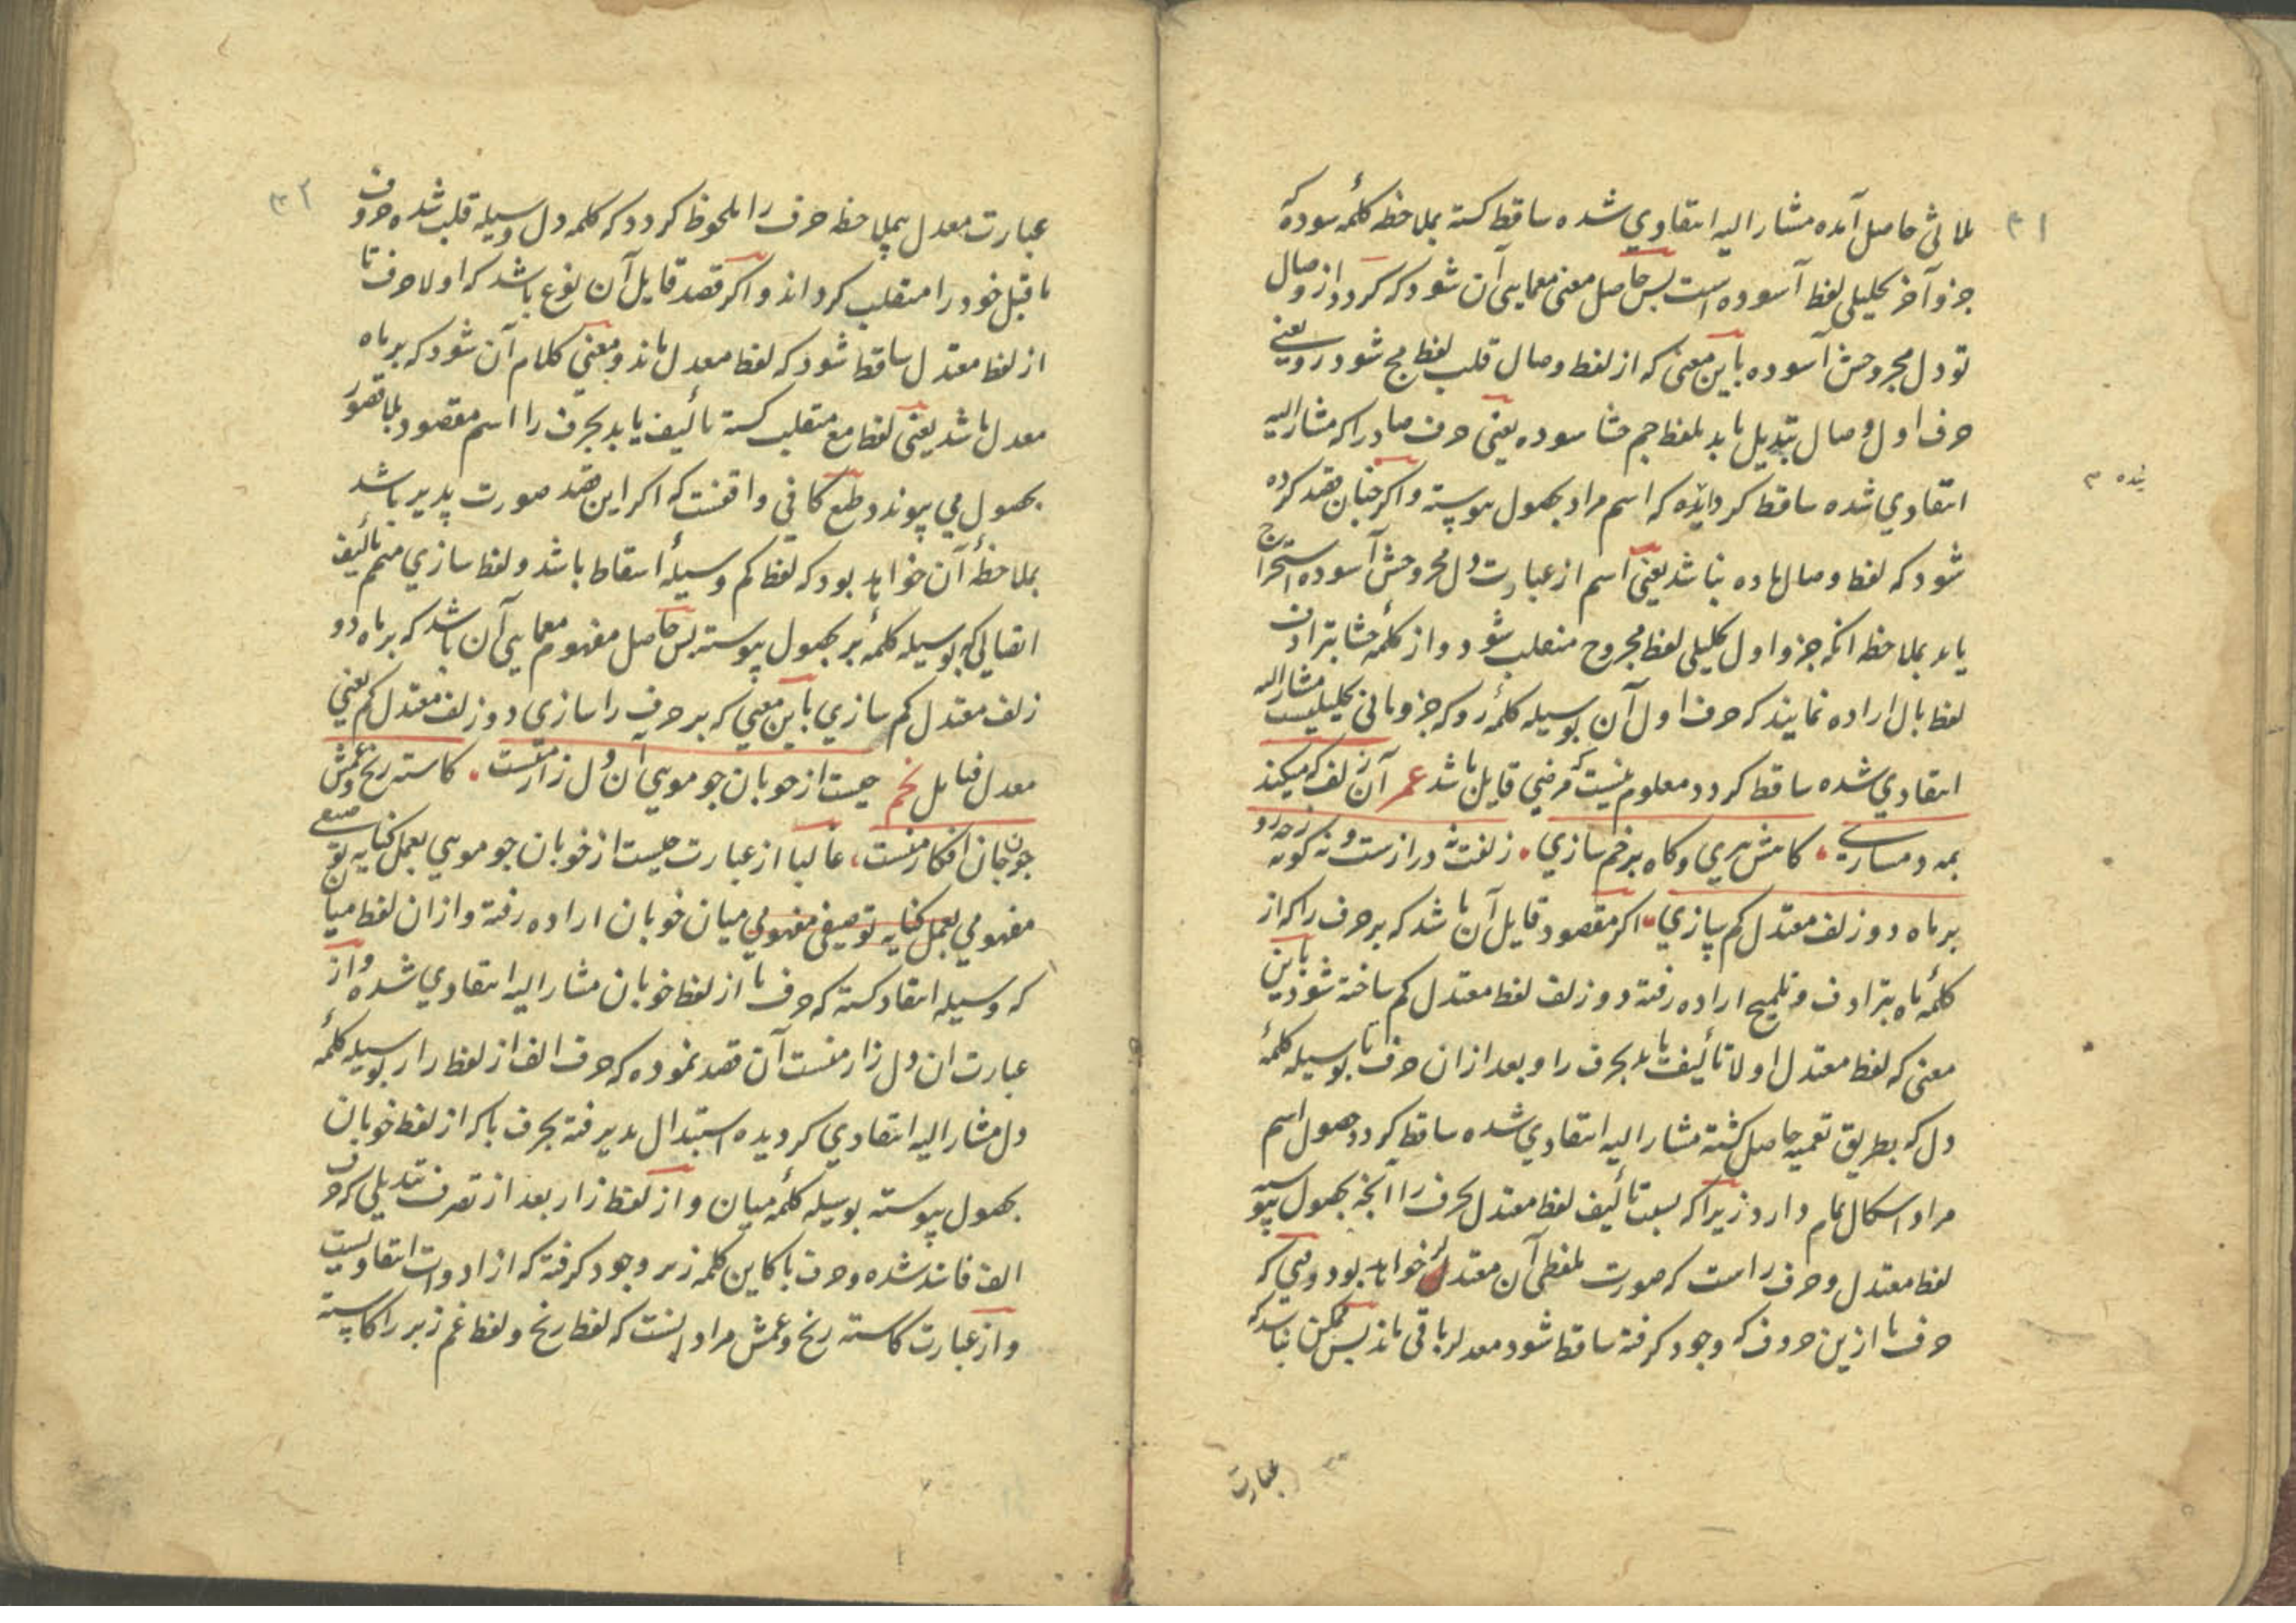 ۳۱
ثلاثی حاصل آمده مشار الیه انتقادی شده ساقط کشته بملاحظه کلمهٔ سوده که
جزو آخر تحلیلی لفظ آسوده است پس حاصل معنی معمایی آن شود که کردد از وصال
تو دل مجروحش آسوده باین معنی که از لفظ وصال قلب لفظ مج شود رو یعنی
حرف اول وصال تبدیل یابد بلفظ جم حشا سوده یعنی حرف صاد را که مشار الیه
انتقادی شده ساقط کردانیده که اسم مراد بحصول پیوسته و اکر چنان قصد کرده
شود که لفظ وصال ماده نباشد یعنی اسم از عبارت دل مجروحش آسوده استخراج
یابد بملاحظه انکه جزو اول تحلیلی لفظ مجروح منقلب شود و از کلمهٔ حشا بترادف
لفظ بال اراده نمایند که حرف اول آن بوسیله کلمهٔ رو که جزو ثانی تحلیلیست مشار الیه
انتقادی شده ساقط کردد معلوم نیست که مرضی قایل باشد عمر آن زلف که میکند
بمه دمسازی کامش بری و کاه برخم سازی زلفت نه درازست و نه کوته زچه رو
بر ماه دو زلف معتدل کم سازی اکر مقصود قایل آن باشد که بر حرف را که از
کلمهٔ ماه بترادف و تلمیح اراده رفته دو زلف لفظ معتدل کم ساخته شود باین
معنی که لفظ معتدل اولا تألیف یابد بحرف را و بعد از ان حرف تا بوسیله کلمهٔ
دل که بطریق تعمیه حاصل کشته مشار الیه انتقادی شده ساقط کردد حصول اسم
مراد اشکال تمام دارد زیرا که بسبب تألیف لفظ معتدل بحرف را انچه بحصول پیوسته
لفظ معتدل و حرف راست که صورت لفظی آن معتدلر خواهد بود و می که
حرف تا ازین حروف که وجود کرفته ساقط شود معدلر باقی ماند پس ممکن نباشد که
عبارت
۳۲
عبارت معدل بملاحظه حرف را ملحوظ کردد که کلمه دل وسیله قلب شده حروف
ماقبل خود را منقلب کرداند و اکر قصد قایل آن نوع باشد که اولا حرف تا
از لفظ معتدل ساقط شود که لفظ معدل ماند و معنی کلام آن شود که بر ماه
معدل باشد یعنی لفظ مع منقلب کشته تألیف یابد بحرف را اسم مقصود بلا قصور
بحصول می پیوندد و طبع کافی واقفست که اکر این قصد صورت پذیر باشد
بملاحظهٔ آن خواهد بود که لفظ کم وسیلهٔ اسقاط باشد و لفظ سازی متمم تألیف
اتصالی که بوسیله کلمهٔ بر بحصول پیوسته پس حاصل مفهوم معمایی آن باشد که بر ماه دو
زلف معتدل کم سازی باین معنی که بر حرف را سازی دو زلف معتدل کم یعنی
معدل فتامل نخم چیست از خوبان جو مویی ان دل زار منست کاسته رنج و غمش
چون جان افکار منست غالبا از عبارت چیست از خوبان جو مویی بعمل کنایه توصیفی
مفهومی بعمل کنایه توصیفی مفهومی میان خوبان اراده رفته و ازان لفظ میا
که وسیله انتقاد کشته که حرف با از لفظ خوبان مشار الیه انتقادی شده و از
عبارت ان دل زار منست آن قصد نموده که حرف الف از لفظ زار بوسیله کلمهٔ
دل مشار الیه انتقادی کردیده استبدال پذیرفته بحرف با که از لفظ خوبان
بحصول پیوسته بوسیله کلمهٔ میان و از لفظ زار بعد از تصرف تبدیلی که حرف
الف فاند شده و حرف با کاین کلمه زبر وجود کرفته که از ادوات انتقادیست
و از عبارت کاسته رنج و غمش مراد اینست که لفظ رنج و لفظ غم زبر را کاسته